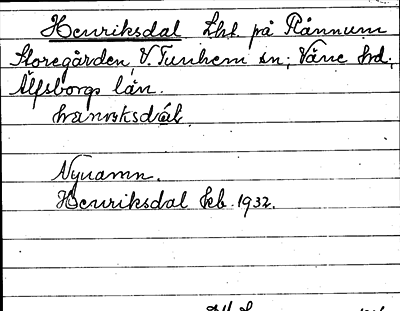 Henriksdal Lht. på Rånnum
Storegården, V. Tunhem sn; Väne hd.,
Älfsborgs län.
Nynamn.
Henriksdal Ekb. 1932.